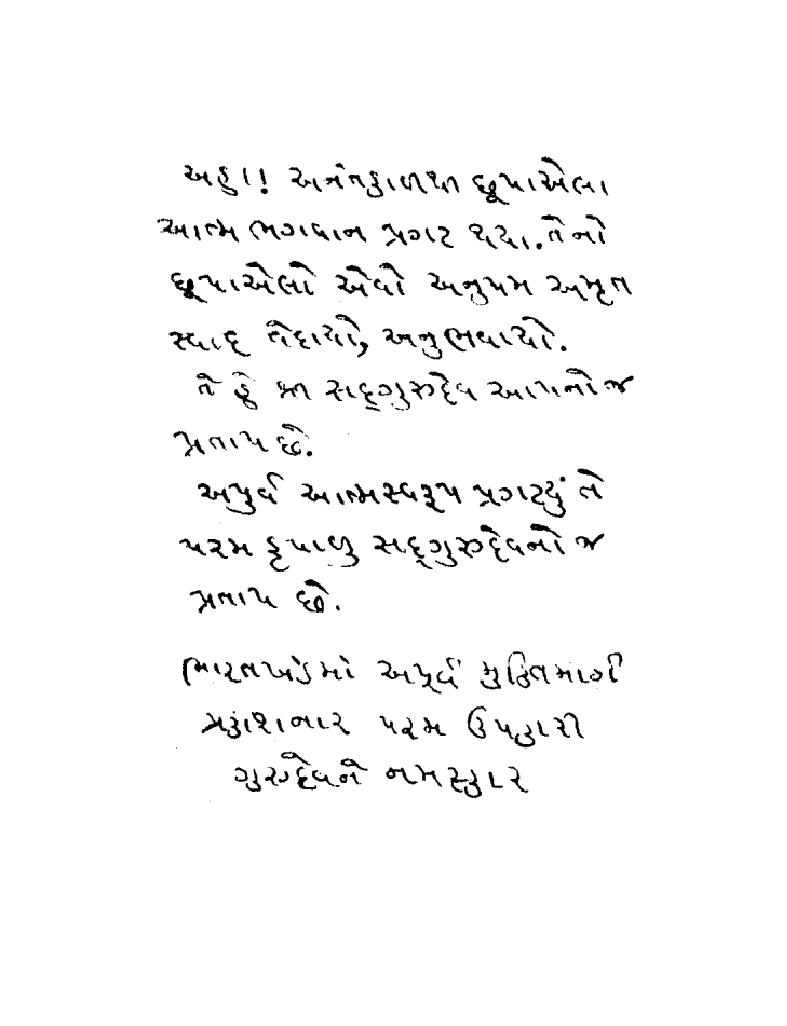 અહા! અનંતકાળથી છૂપાએલા
આત્મ ભગવાન પ્રગટ થયા. તેનો
છૂપાએલો એવો અનુપમ અમૃત
સ્વાદ વેદાયો, અનુભવાયો.
તે હે શ્રી સદ્ગુરુદેવ આપનો જ
પ્રતાપ છે.
અપુર્વ આત્મસ્વરૂપ પ્રગટ્યું તે
પરમ કૃપાળુ સદ્ગુરુદેવનો જ
પ્રતાપ છે.
ભારતખંડમાં અપૂર્વ મુક્તિમાર્ગ
પ્રકાશનાર પરમ ઉપકારી
ગુરુદેવને નમસ્કાર